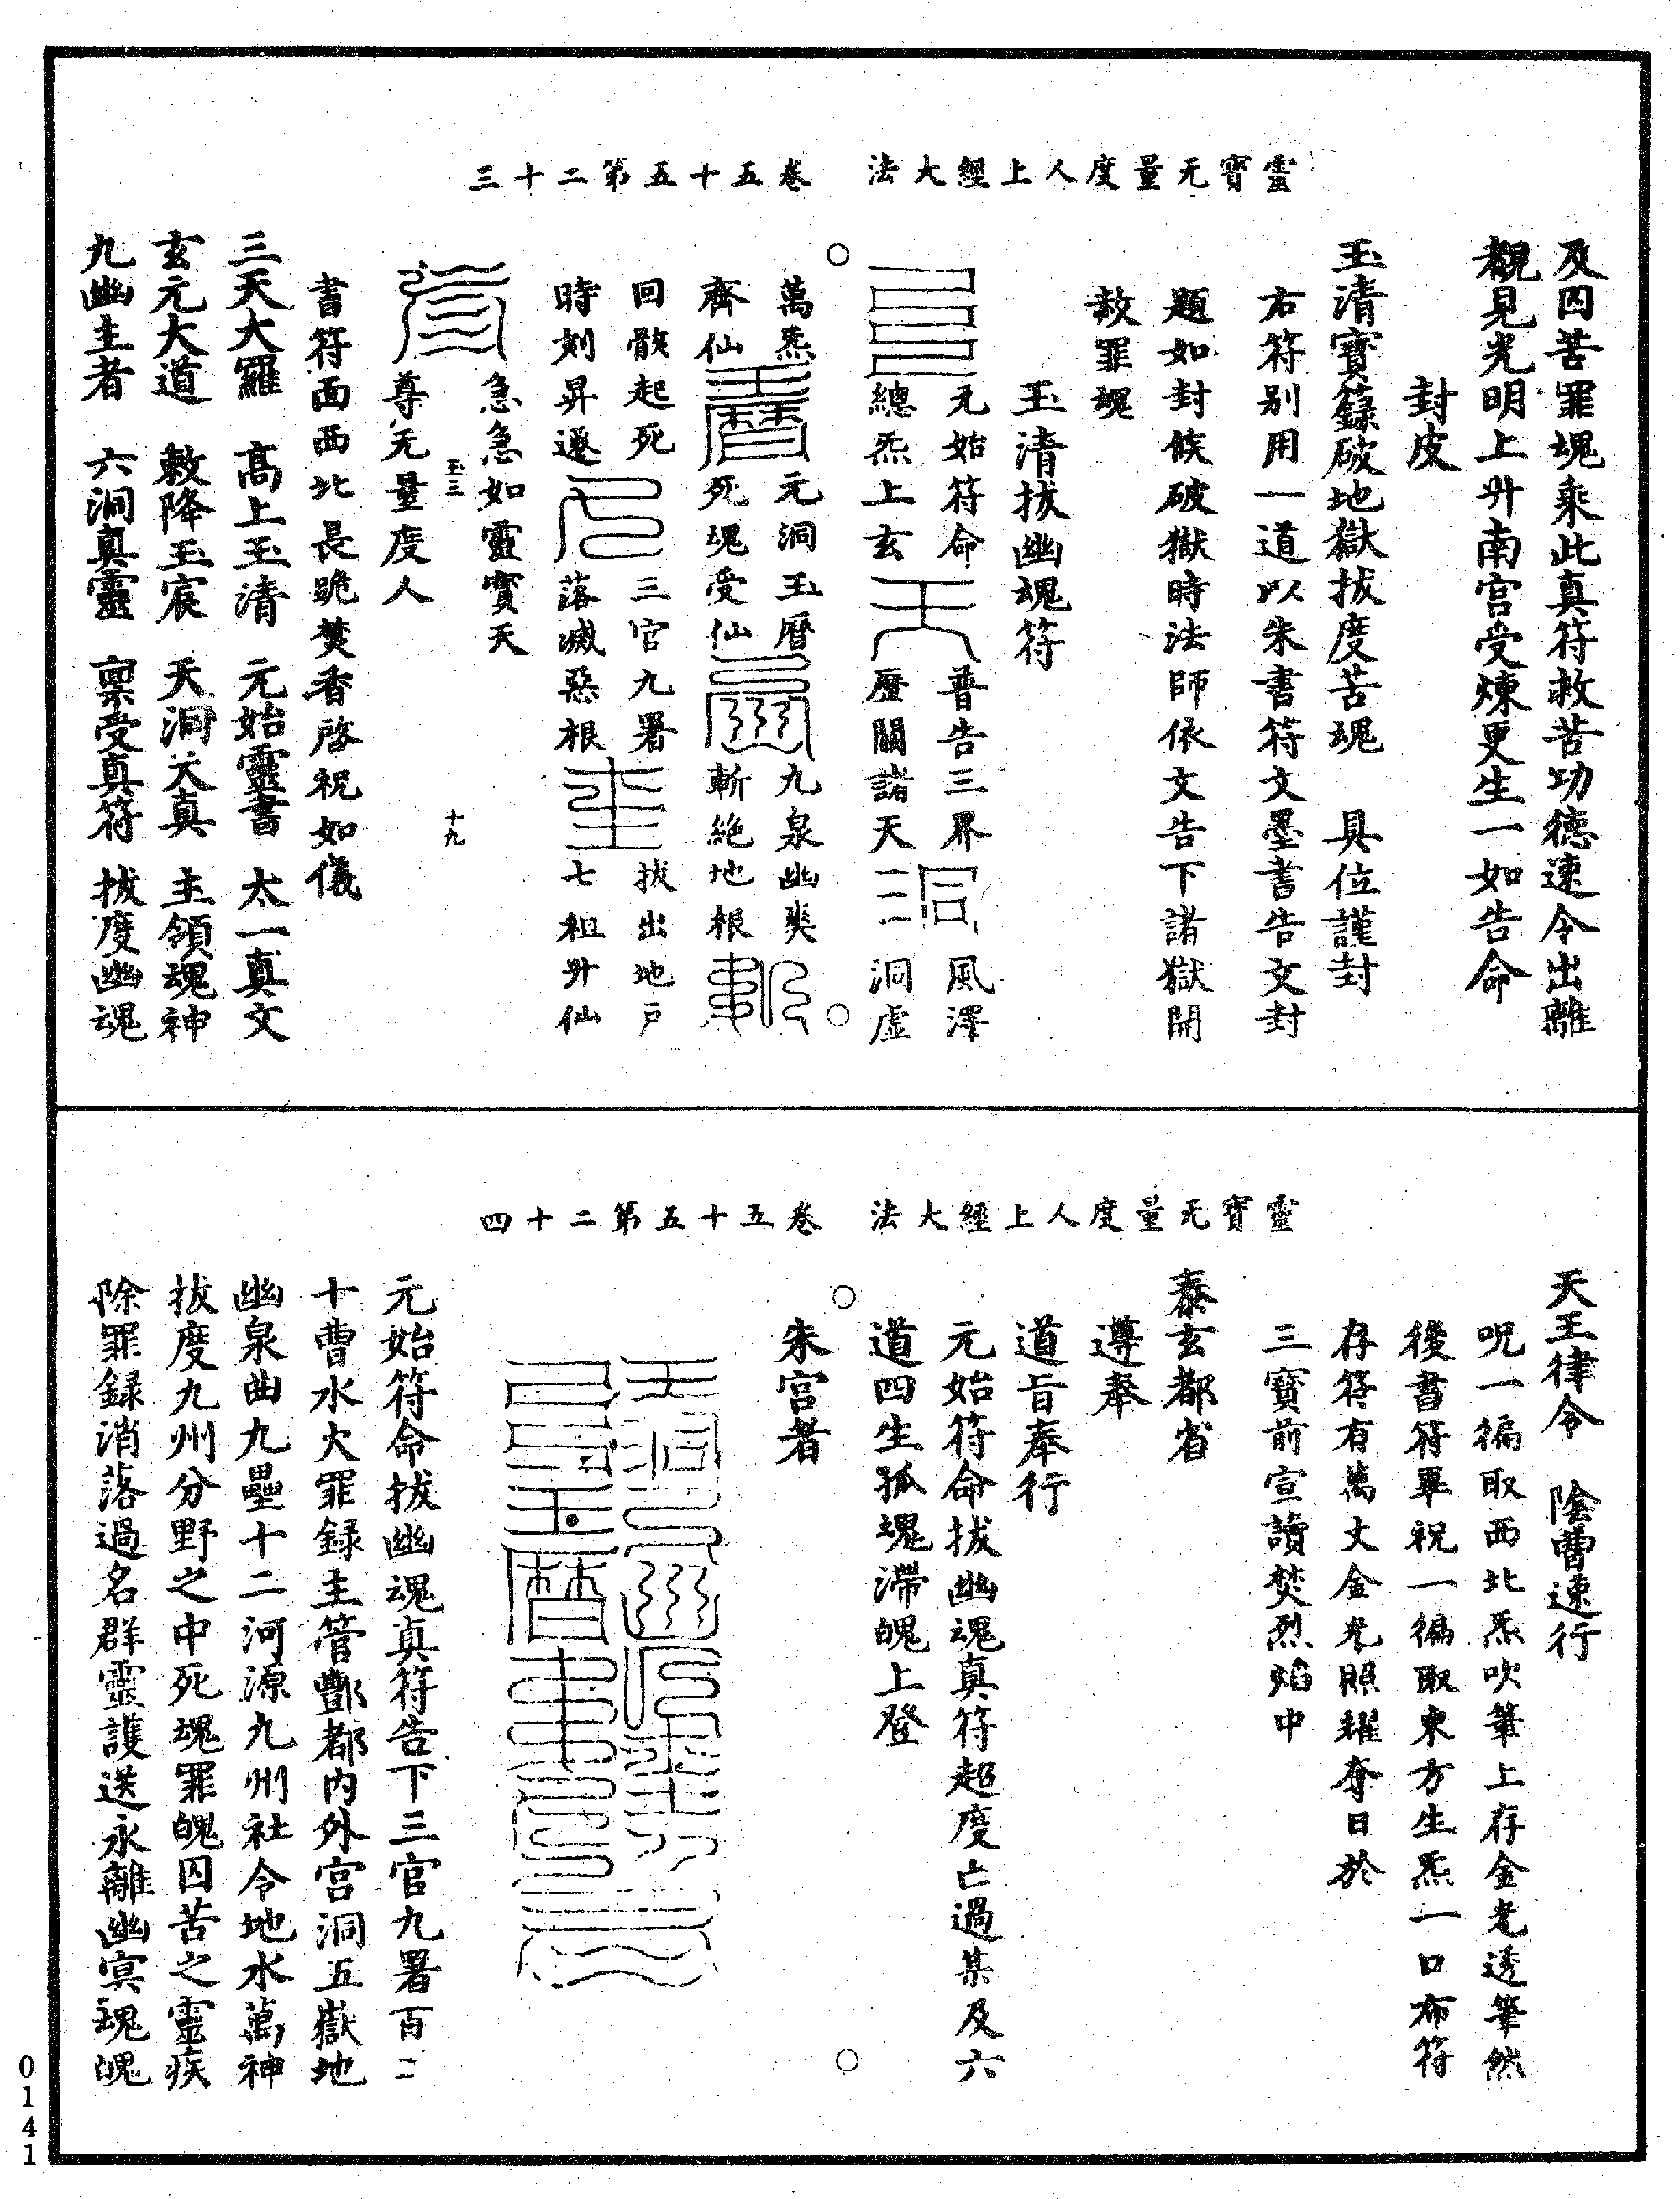 靈寶无量度人上經大法　卷五十五第二十三
及囚苦罪魂乘此真符救苦功德速令出離
覩見光明上升南宮受煉更生一如告命
封皮
玉清寶籙破地獄拔度苦魂　具位謹封
右符別用一道以朱書符文墨書告文封
題如封候破獄時法師依文告下諸獄開
赦罪魂
玉清拔幽魂符
元始符命　普告三界　風澤
總炁上玄　歷關諸天　洞虛
萬炁　元洞玉曆　九泉幽爽
齊仙　死魂受仙　斬絕地根
回骸起死　三官九署　拔出地戶
時刻昇遷　落滅惡根　七祖升仙
急急如靈寶天
尊无量度人
玉三　十九
書符面西北長跪焚香啓祝如儀
三天大羅　高上玉清　元始靈書　太一真文
玄元大道　敕降玉宸　天洞天真　主領魂神
九幽主者　六洞真靈　稟受真符　拔度幽魂
靈寶无量度人上經大法　卷五十五第二十四
天王律令　陰曹速行
呪一徧取西北炁吹筆上存金光透筆然
後書符畢祝一徧取東方生炁一口布符
存符有萬丈金光照耀奪日於
三寶前宣讀焚烈焰中
泰玄都省
遵奉
道旨奉行
元始符命拔幽魂真符超度亡過某及六
道四生孤魂滯魄上登
朱宮者
元始符命拔幽魂真符告下三官九署百二
十曹水火罪録主管酆都內外宮洞五嶽地
幽泉曲九壘十二河源九州社令地水萬神
拔度九州分野之中死魂罪魄囚苦之靈疾
除罪録消落過名群靈護送永離幽冥魂魄
0141